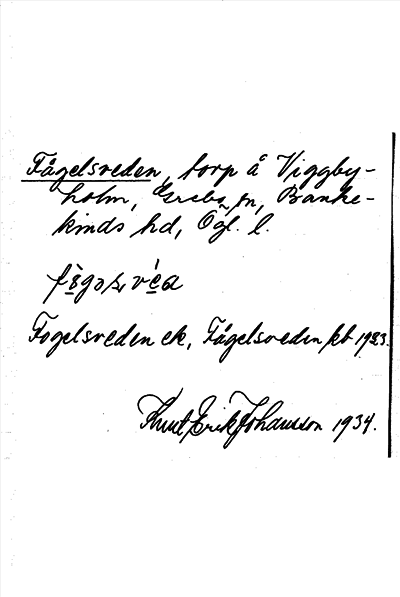 Fågelsreden, torp å Viggby-
holm, Grebo sn, Banke-
kinds hd, Ögl. l.
Fogelsreden ek, Fågelsreden kb 1923.
Knut Erik Johansson 1934.